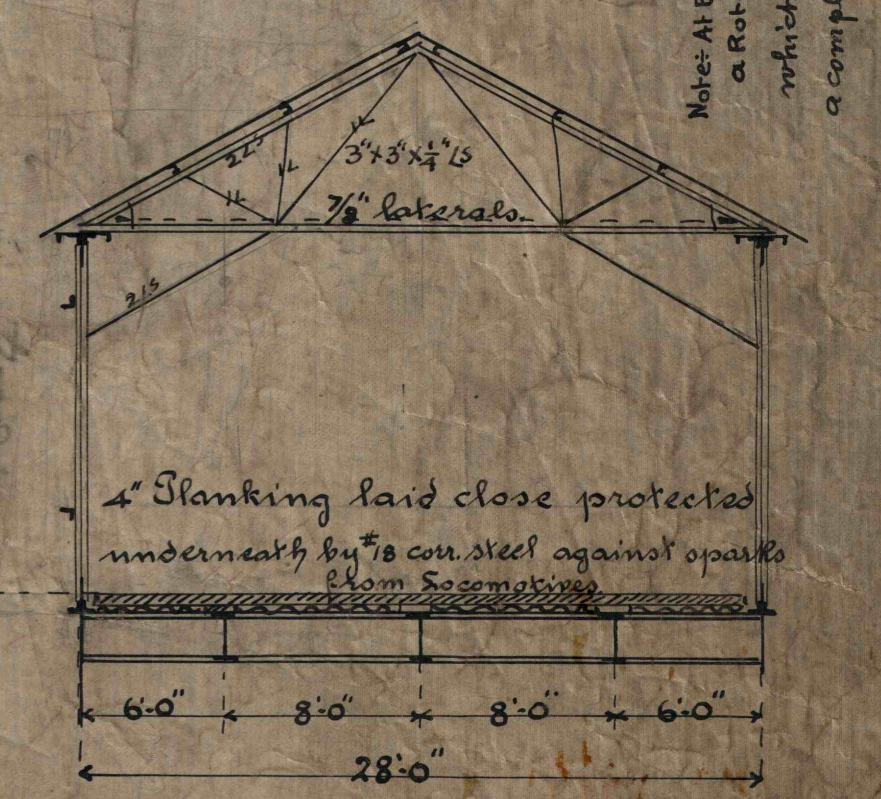 Note:- At E
a Rot
which
a compl
2 LS
1L
1L
1L
3"x3"x¼" LS
7/8" laterals.
2 LS
4" Planking laid close protected
underneath by #18 corr. steel against sparks
from Locomotives
6'-0" 8'-0" 8'-0" 6'-0"
28'-0"